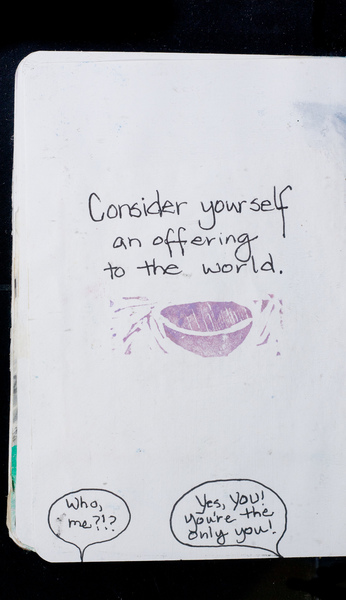 Consider yourself
an offering
to the world.
Who,
me?!?
Yes, You!
You're the
only you!